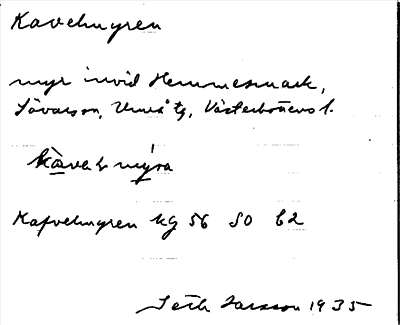 Kavelmyren
myr invid Hemmesmark,
Sävarsn, Umeå tg, Västerbottens l.
kavel myra
Kafvelmyren kg 56 SO C2
Seth Larsson 1935